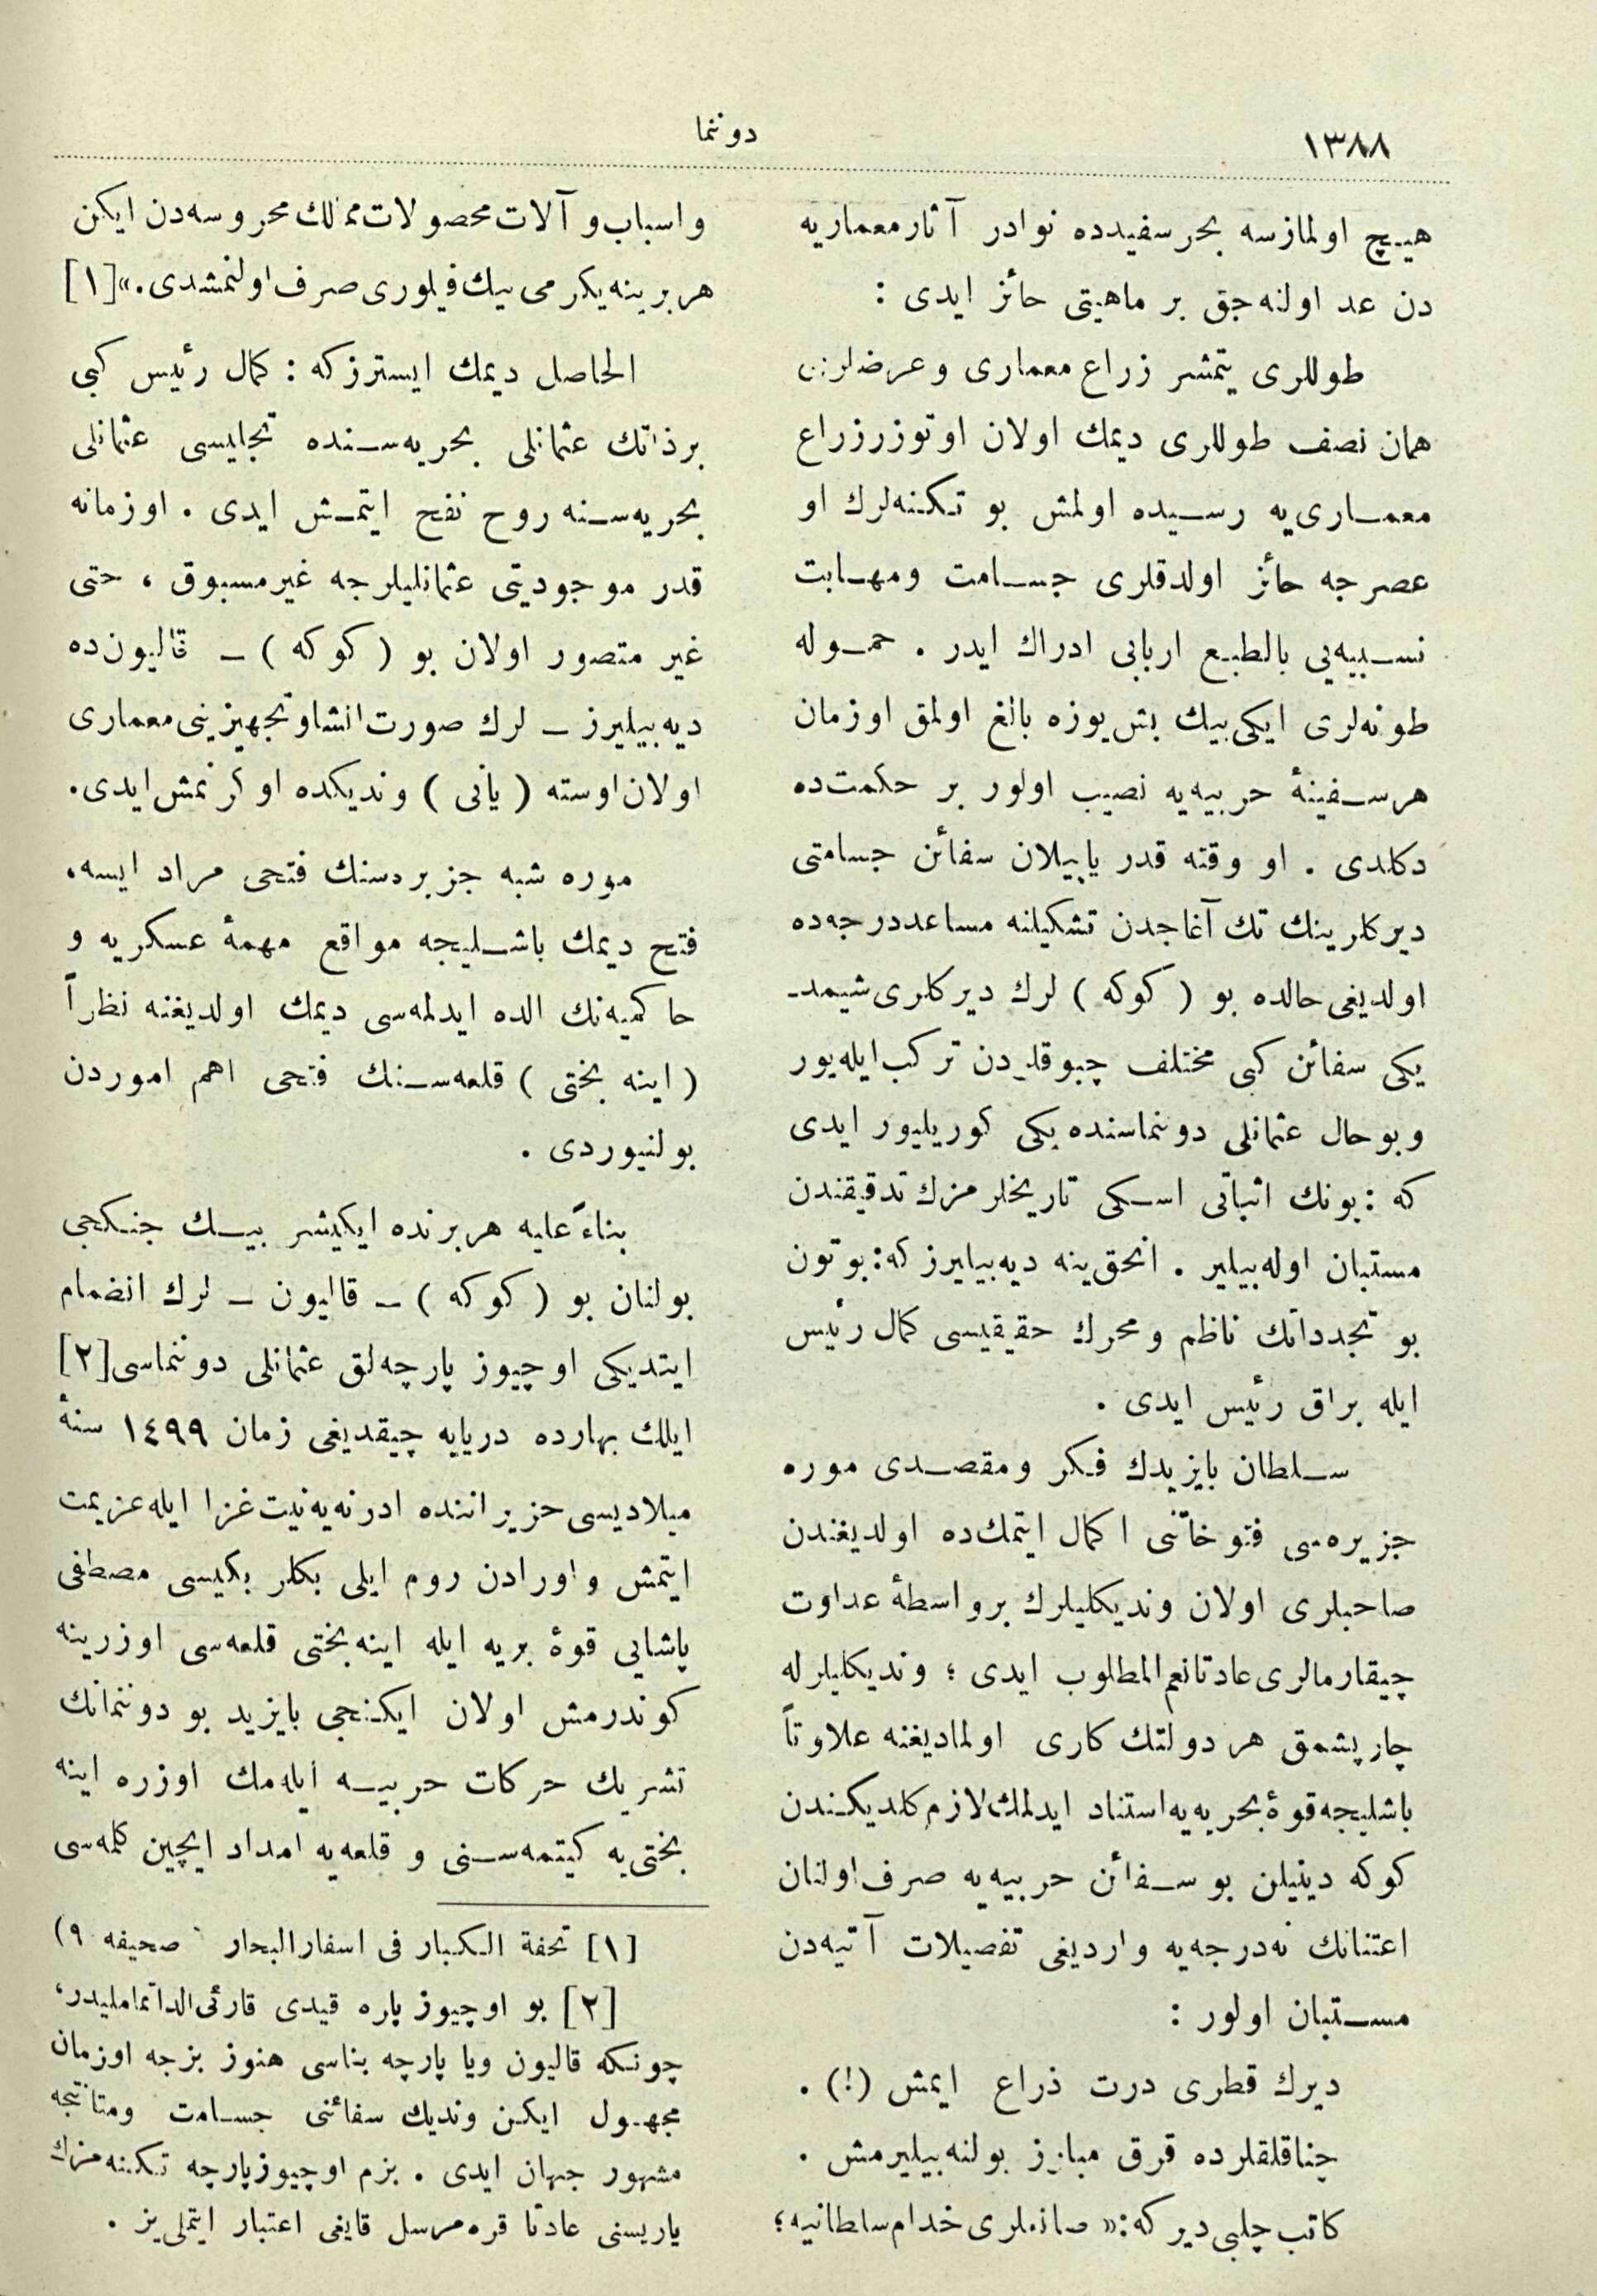 ١٣٨٨
دوننما
هیچ اولمازسه بحر سفیدده نوادر آثار معماریه
دن عد اولنه‌جق بر ماهیتی حائز ایدی :
طوللری یتمشر زراع معماری و عرضلری
همان نصف طوللری دیمك اولان اوتوزر زراع
معماری‌یه رسیده اولمش بو تكنه‌لرك او
عصرجه حائز اولدقلری جسامت ومهابت
نسبیه‌یی بالطبع اربابی ادراك ایدر . حموله
طونه‌لری ایكی بیك بش یوزه بالغ اولمق اوزمان
هر سفینهٔ حربیه‌یه نصیب اولور بر حكمت‌ده
دكلدی . او وقته قدر یاپیلان سفائن جسامتی
دیركلرینك تك آغاجدن تشكیلنه مساعد درجه‌ده
اولدیغی حالده بو ( كوكه ) لرك دیركلری شیمدـ
یكی سفائن كبی مختلف چبوقلردن تركب ایله‌یور
وبو حال عثمانلی دوننماسنده یكی كوریلیور ایدی
كه : بونك اثباتی اسكی تاریخلرمزك تدقیقندن
مستبان اوله‌بیلیر . انحق ینه دیه‌بیلیرز كه : بوتون
بو تجدداتك ناظم ومحرك حقیقیسی كمال رئیس
ایله براق رئیس ایدی .
سلطان بایزیدك فكر ومقصدی موره
جزیره‌سی فتوحاتنی اكمال ایتمك‌ده اولدیغندن
صاحبلری اولان وندیكلیلرك بر واسطهٔ عداوت
چیقارمالری عادتا نعم المطلوب ایدی ؛ وندیكلیلرله
چارپشمق هر دولتك كاری اولمادیغنه علاوتاً
باشلیجه قوهٔ بحریه‌یه استناد ایدلمك لازم كلدیكندن
كوكه دینیلن بو سفائن حربیه‌یه صرف اولنان
اعتنانك نه‌درجه‌یه واردیغی تفصیلات آتیه‌دن
مستبان اولور :
دیرك قطری درت ذراع ایمش (!) .
چناقلقلرده قرق مبارز بولنه‌بیلیرمش .
كاتب چلبی دیر كه : « صانه‌لری خدام سلطانیه ؛
واسباب و آلات محصولات ممالك محروسه‌دن ایكن
هر برینه یكرمی بیك فیلوری صرف اولنمشدی . » [١]
الحاصل دیمك ایسترزكه : كمال رئیس كبی
بر ذاتك عثمانلی بحریه‌سنده تجلیسی عثمانلی
بحریه‌سنه روح نفح ایتمش ایدی . اوزمانه
قدر موجودیتی عثمانلیلرجه غیر مسبوق ، حتی
غیر متصور اولان بو ( كوكه ) ــ قالیون‌ده
دیه‌بیلیرز ــ لرك صورت انشا وتجهیزینی معماری
اولان اوسته ( یانی ) وندیكده اوكرنمش ایدی .
موره شبه جزیره‌سنك فتحی مراد ایسه ،
فتح دیمك باشلیجه مواقع مهمهٔ عسكریه و
حاكمیه‌نك الده ایدلمه‌سی دیمك اولدیغنه نظراً
( اینه بختی ) قلعه‌سنك فتحی اهم اموردن
بولنیوردی .
بناءً علیه هر برنده ایكیشر بیك جنكجی
بولنان بو ( كوكه ) ــ قالیون ــ لرك انضمام
ایتدیكی اوچیوز پارچه‌لق عثمانلی دوننماسی [٢]
ایلك بهارده دریایه چیقدیغی زمان ١٤٩٩ سنهٔ
میلادیسی حزیراننده ادرنه‌یه نیت غزا ایله عزیمت
ایتمش واورادن روم ایلی بكلر بكیسی مصطفی
پاشایی قوهٔ بریه ایله اینه‌بختی قلعه‌سی اوزرینه
كوندرمش اولان ایكنجی بایزید بو دوننمانك
تشریك حركات حربیه ایله‌مك اوزره اینه
بختی‌یه كیتمه‌سنی و قلعه‌یه امداد ایچین كلمه‌سی
[١] تحفة الكبار فی اسفار البحار صحیفه ٩)
[٢] بو اوچیوز پاره قیدی قارئی الداتماملیدر ،
چونكه قالیون ویا پارچه بناسی هنوز بزجه اوزمان
مجهول ایكن وندیك سفائنی جسامت ومتانتجه
مشهور جهان ایدی . بزم اوچیوز پارچه تكنه‌مزك
یاریسنی عادتا قره‌مرسل قایغی اعتبار ایتملی‌یز .